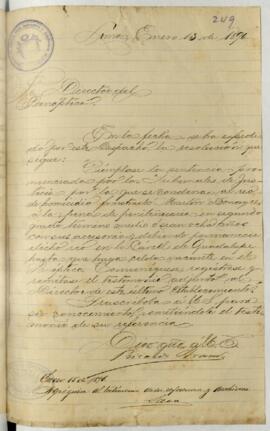 249
Lima, Enero 13 de 1896
Sr. Director del
Panóptico.
En la fecha se ha expedi
do por este Despacho la resolución que
sigue:
"Cúmplase la sentencia pro
nunciada por los Tribunales de jus
ticia por la que se condena al reo
de homicidio frustrado Martín
á la pena de penitenciaría en segundo
grado, término
sus accesorias, debiendo permanecer
dicho reo en la Cárcel de Guadalupe
hasta que haya celda vacante en el
Panóptico. Comuníquese, regístrese y
remítase el testimonio adjunto al
Director de este último Establecimiento."
Trascríbola á US. para
su conocimiento, remitiéndole el testi
monio de su referencia.
Dios gue. á US.
Enero 15 de 1896
Agréguese al testimonio de su referencia y archívese